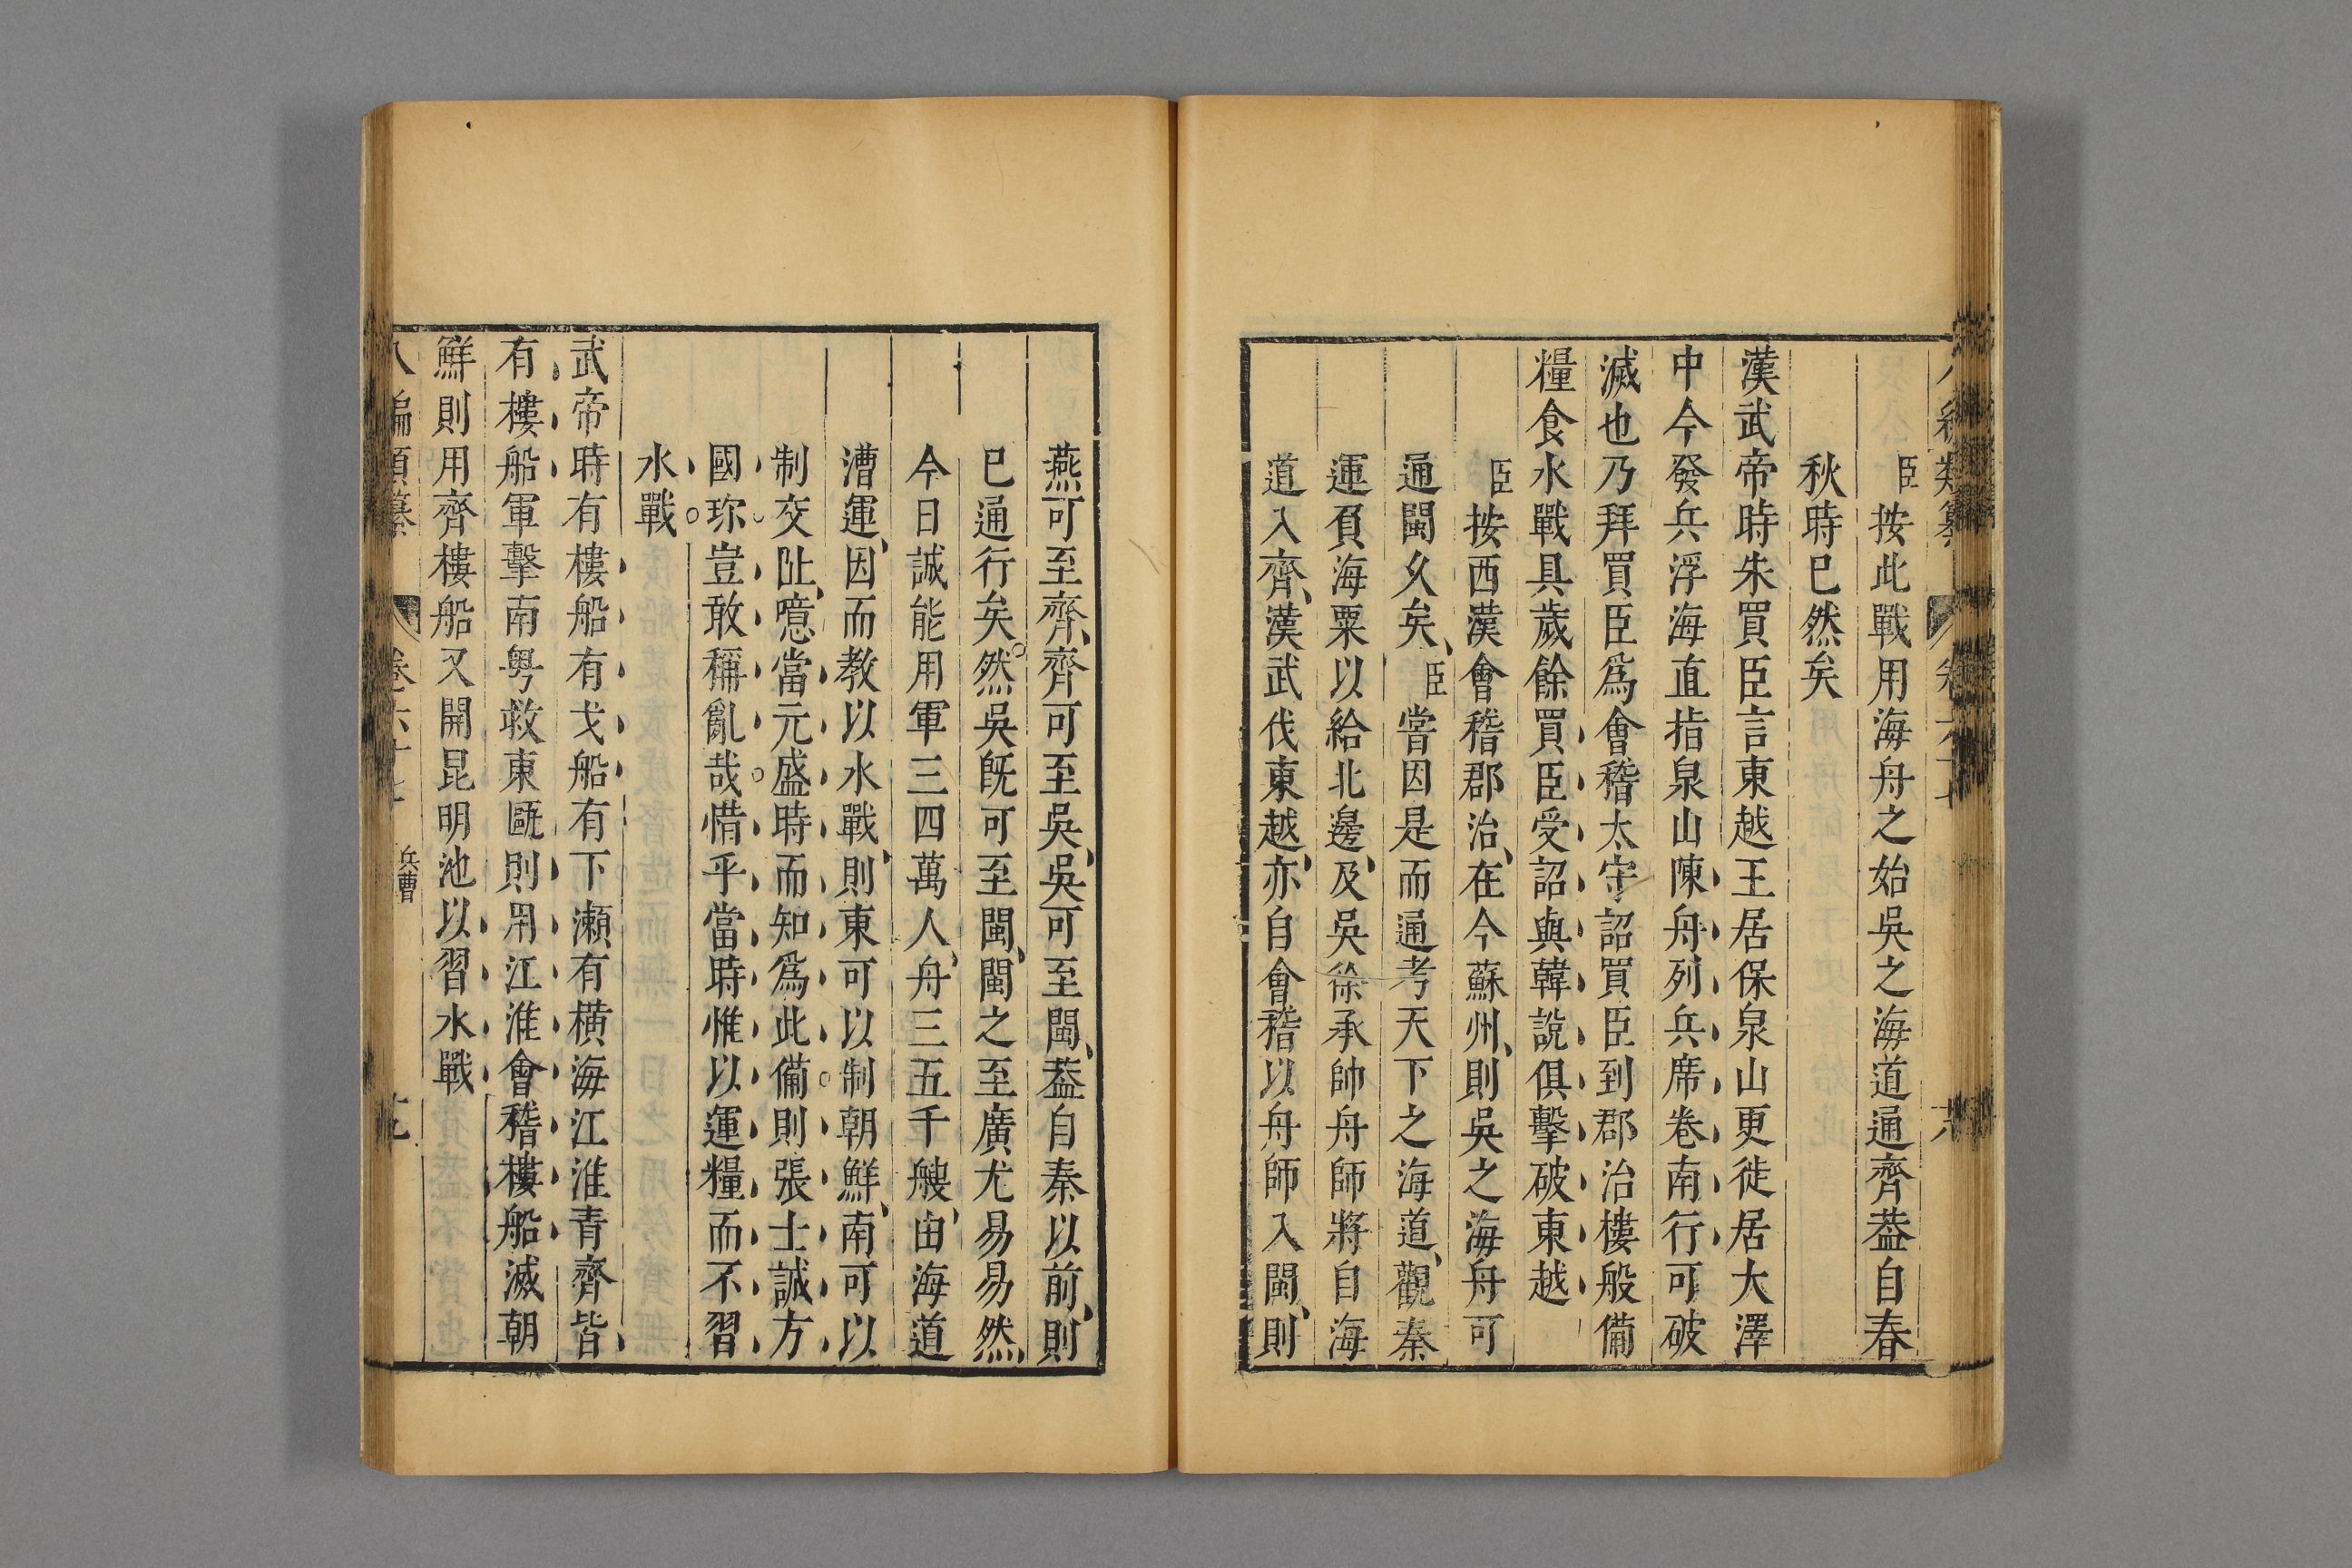 臣按此戰用海舟之始吳之海道通齊葢自春
秋時已然矣
漢武帝時朱買臣言東越王居保泉山更徙居大澤
中今發兵浮海直指泉山陳舟列兵席卷南行可破
滅也乃拜買臣爲會稽太守詔買臣到郡治樓般備
糧食水戰具歲餘買臣受詔與韓說俱擊破東越
臣按西漢會稽郡治在今蘇州則吳之海舟可
通閩久矣臣嘗因是而通考天下之海道觀秦
運負海粟以給北邊及吳徐承帥舟師將自海
道入齊漢武伐東越亦自會稽以舟師入閩則
燕可至齊齊可至吳吳可至閩葢自秦以前則
已通行矣然吳旣可至閩閩之至廣尤易易然
今日誠能用軍三四萬人舟三五千艘由海道
漕運因而教以水戰則東可以制朝鮮南可以
制交阯噫當元盛時而知爲此備則張士誠方
國珎豈敢稱亂哉惜乎當時惟以運糧而不習
水戰
武帝時有樓船有戈船有下瀨有橫海江淮青齊皆
有樓船軍擊南粤救東甌則用江淮會稽樓船滅朝
鮮則用齊樓船又開昆明池以習水戰
八編類纂 卷六十七 兵曹